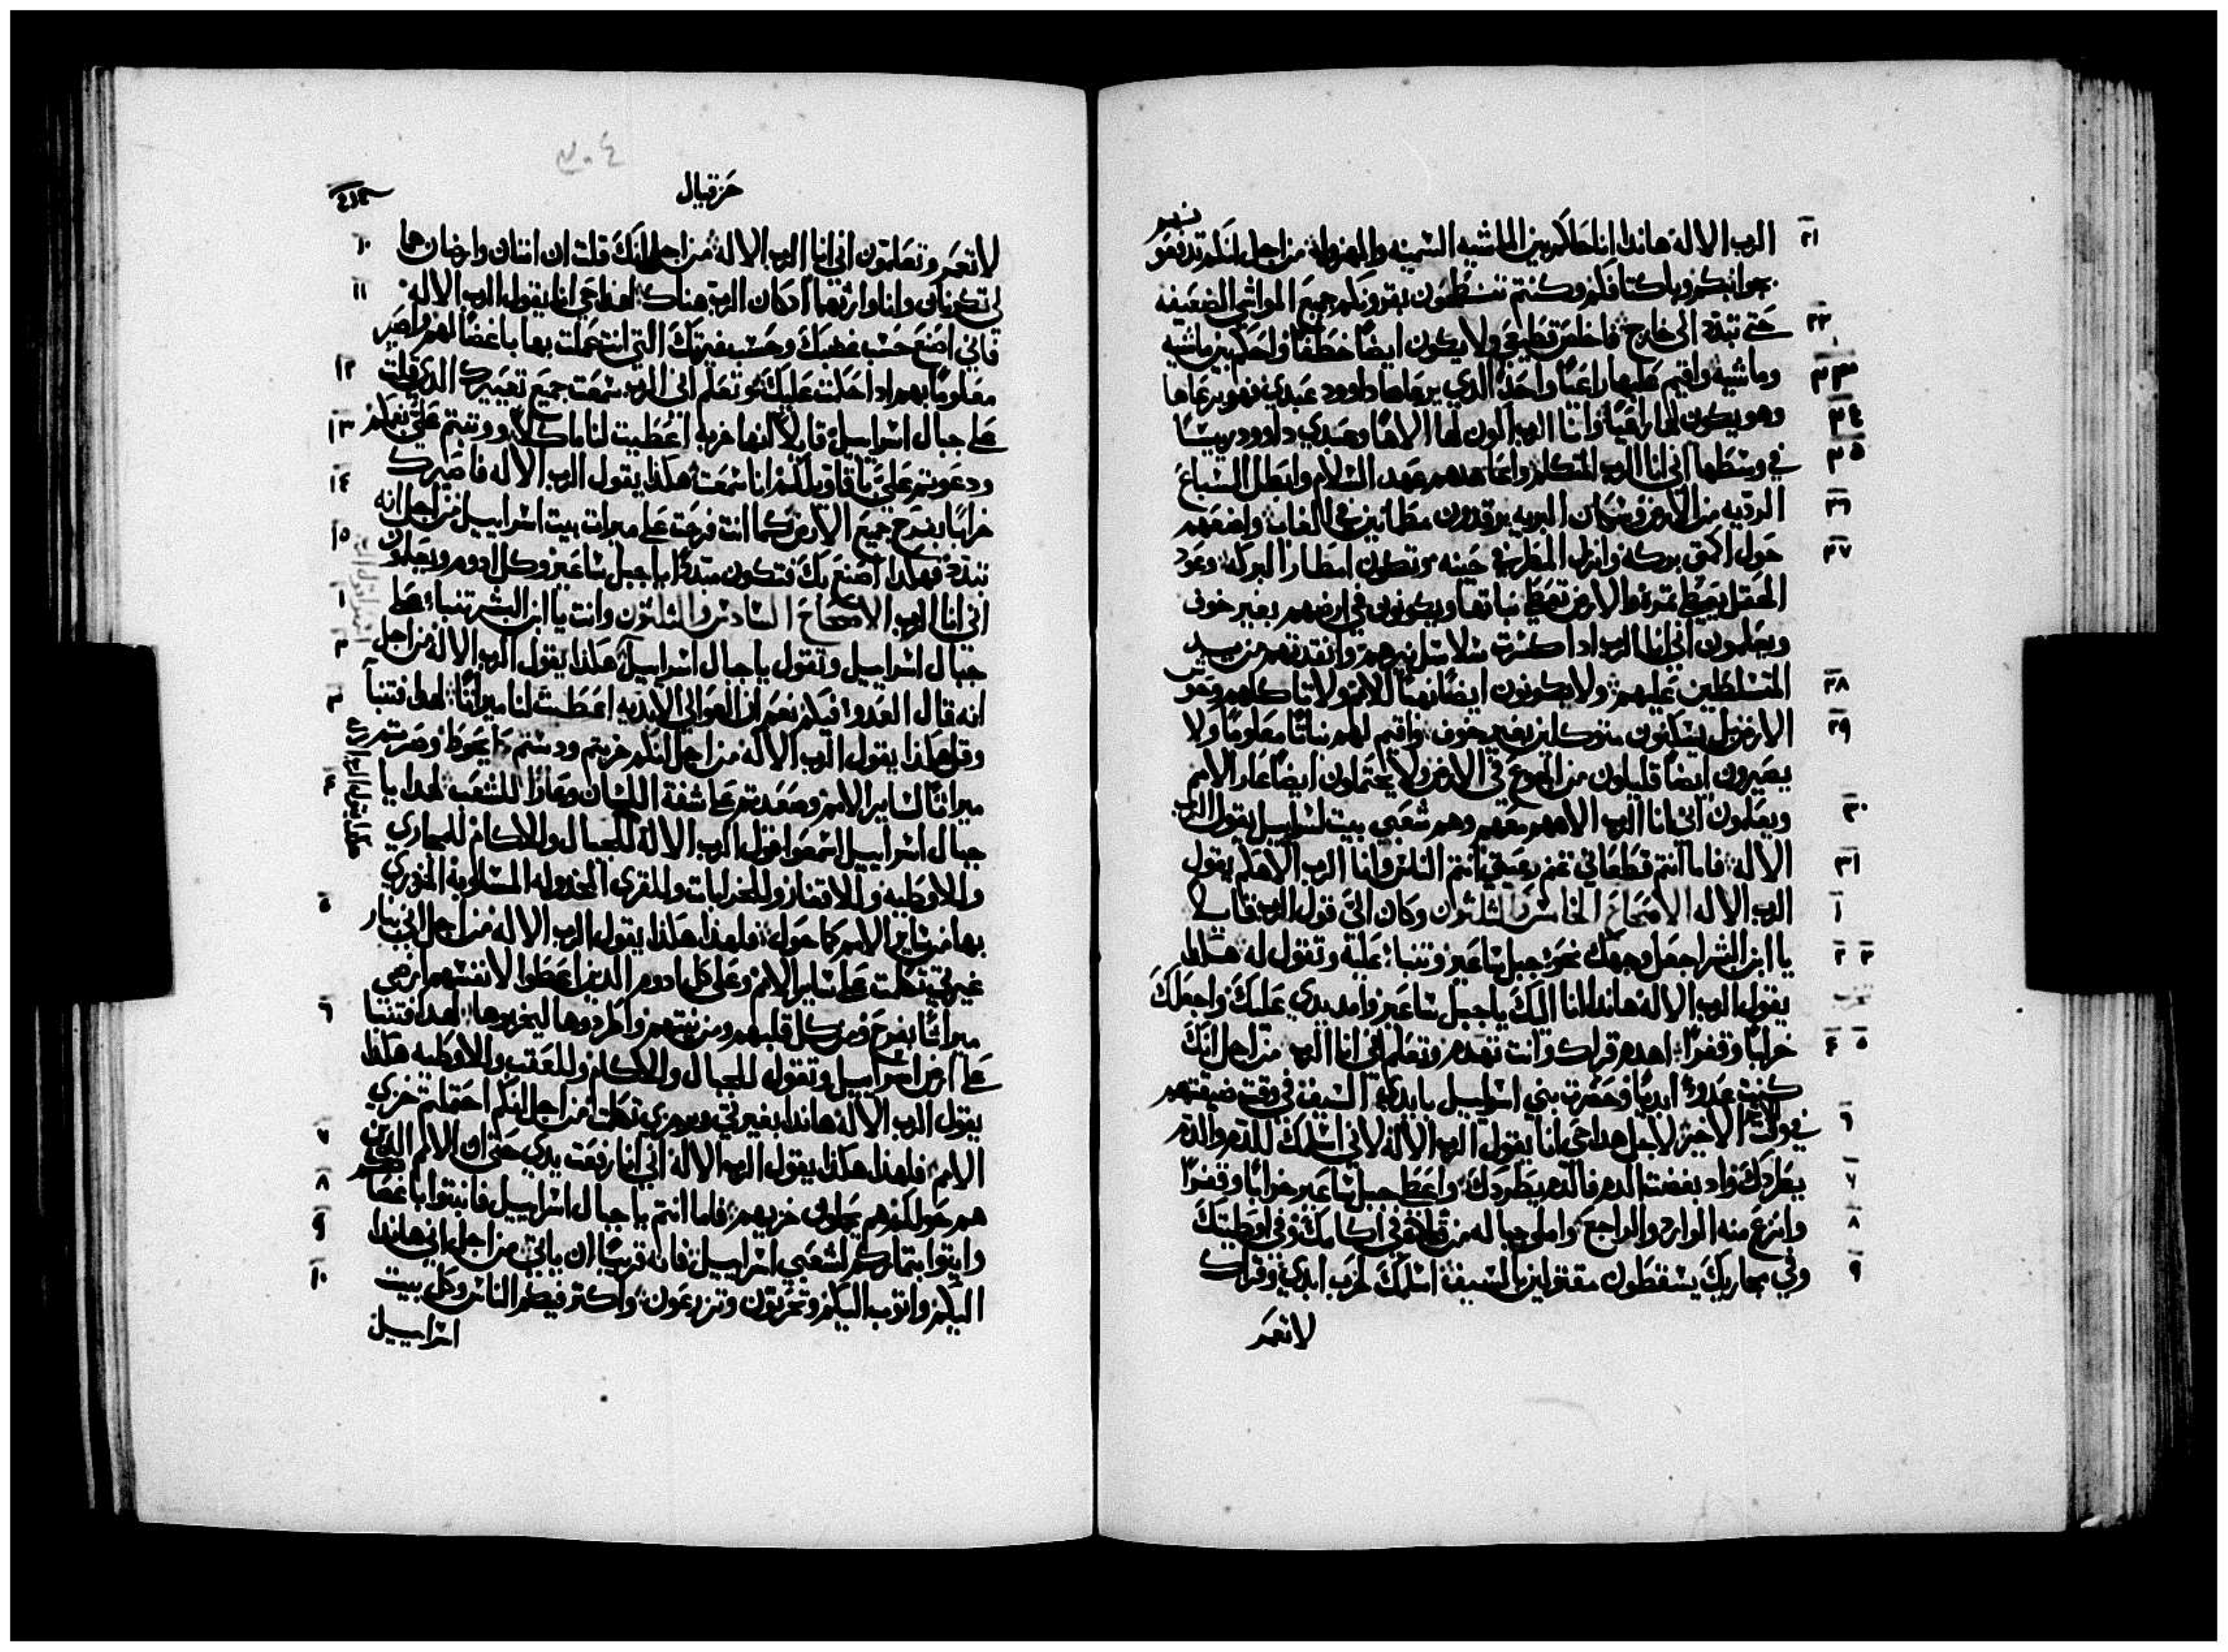 الرب الاله هاندا انا احاكم بين الماشيه السمينه والمهزوله من اجل انكم تدفعو
٢١
بجوانبكم وباكتافكم وكنتم تنطحون بقرونكم جميع المواشي الضعيفه
حتى تبدد الى خارج فاخلص قطيعي ولا يكون ايضًا خطفًا واحكم بين ماشيه
٢٢
وماشيه واقيم عليها راعيًا واحدًا الذي يرعاها داوود عبدي فهو يرعاها
٢٣
وهو يكون لها راعيًا وانا الرب اكون لها الاهًا وعبدي داوود رييسًا
٢٤
في وسطها اني انا الرب المتكلم واعاهدهم عهد السلام وابطل السباع
٢٥
الرديه من الارض وسكان البريه يرقدون مطمانين في الغاب واضعهم
٢٦
حول اكمتي بركه وانزل المطر في حينه وتكون امطار البركه وعود
٢٧
الحقل يعطي ثمرته والارض تعطي نباتها ويكونون في ارضهم بغير خوف
ويعلمون اني انا الرب اذا كسرت سلاسل نيرهم وانقدتهم من يد
المتسلطين عليهم ولا يكونون ايضًا نهبًا للامم ولا تاكلهم وحوش
٢٨
الارض بل يسكنون متوكلين بغير خوف واقيم لهم نباتًا معلومًا ولا
٢٩
يصيرون ايضًا قليلون من الجوع في الارض ولا يحتملون ايضًا عار الامم
ويعلمون اني انا الرب الاههم معهم وهم شعبي بيت اسراييل يقول الرب
٣٠
الاله فاما انتم قطعاني غنم رعيتي فانتم الناس وانا الرب الاهكم يقول
٣١
الرب الاله الاصحاح الخامس والثلثون وكان الي قول الرب قايلًا
١
يا ابن البشر اجعل وجهك نحو جبل ساعير وتنبا عليه وتقول له هكدا
٢ ٣
يقول الرب الاله هاندا انا اليك يا جبل ساعير وامد يدي عليك واجعلك
خرابًا وقفرًا اهدم قراك وانت تقدم وتعلم اني انا الرب من اجل انك
٤ ٥
كنت عدوًا ابديًا وحصرت بني اسراييل بايدي السيف في وقت ضيقتهم
في وقت الاثم الاخير لاجل هدا حي انا يقول الرب الاله لاني اسلمك للدم والدم
٦
يطردك واد بغضت الدم فالدم يطردك واعطي جبل ساعير خرابًا وقفرًا
٧
وانزع منه الوارد والراجع واملي جباله من قتلاه في اكامك وفي اوطيتك
٨
وفي مجاريك يسقطون مقتولين بالسيف اسلمك لخرب ابدي وقراك
٩
لا تعمر
حزقيال
لا تعمر وتعلمون اني انا الرب الاله من اجل انك قلت ان امتان وارضان هما
١٠
لي تكونان وانا وارثهما اد كان الرب هناك لهدا حي انا يقول الرب الاله
١١
فاني اصنع حسب غضبك وحسب غيرتك التي انت عملت بها باغضًا لهم واصير
معلومًا بهم ادا حكمت عليك وتعلم اني الرب سمعت جميع تعييرك الدي قلت
١٢
على جبال اسراييل قايلًا انها خربه اعطيت لنا ماكلًا وقمتم علي بفمكم
١٣
ودعوتم علي باقاويلكم انا سمعت هكدا يقول الرب الاله فاصيرك
١٤
خرابًا بفرح جميع الارض كما انت فرحت على ميرات بيت اسراييل من اجل انه
تبدد فهكدا اصنع بك فتكون متبددًا يا جبل ساعير وكل ادوم ويعلمون
١٥
اني انا الرب الاصحاح السادس والثلثون وانت يا ابن البشر تنبا على
١
جبال اسراييل وتقول يا جبال اسراييل هكدا يقول الرب الاله من اجل
٢
انه قال العدو فيكم نعم ان العوالي الابديه اعطيت لنا ميراثًا لهدا فتنبا
٣
وقل هكدا يقول الرب الاله من اجل انكم خربتم ودستم كما يحوط وصرتم
ميراثًا لساير الامم وصعدتم على شفة اللسان وعارًا للشعب لهدا يا
٤
جبال اسراييل اسمعوا قول الرب الاله للجبال والاكام للمجاري
وللاوطيه وللاقفار وللخرابات وللقرى المخدوله المسلوبه
بها من ساير الامم كما حول فلهدا هكدا يقول الرب الاله من اجل اني بنار
٥
غيرتي تكلمت على ساير الامم وعلى كل ادوم الدين اعطوا لانفسهم ارضي
ميراثًا بفرح ومن كل قلبهم ومن نيتهم واطردوها ليخربوها لهدا فتنبا
٦
على ارض اسراييل وتقول للجبال والاكام وللعقب وللاوطيه هكدا
يقول الرب الاله هاندا بغيرتي وبرجزي تكلمت من اجل انكم احتملتم خزي
الامم فلهدا هكدا يقول الرب الاله اني انا رفعت يدي حتى ان الامم الدين
٧
هم حولكم هم يحملون خزيهم فاما انتم يا جبال اسراييل فانبتوا اغصانكم
٨
وايتوا بثماركم لشعبي اسراييل فانه قريبًا ان ياتي من اجل اني هاندا
٩
اليكم واتوب اليكم وتحرثون وتزرعون واكتر فيكم الناس وكل بيت
١٠
اسراييل